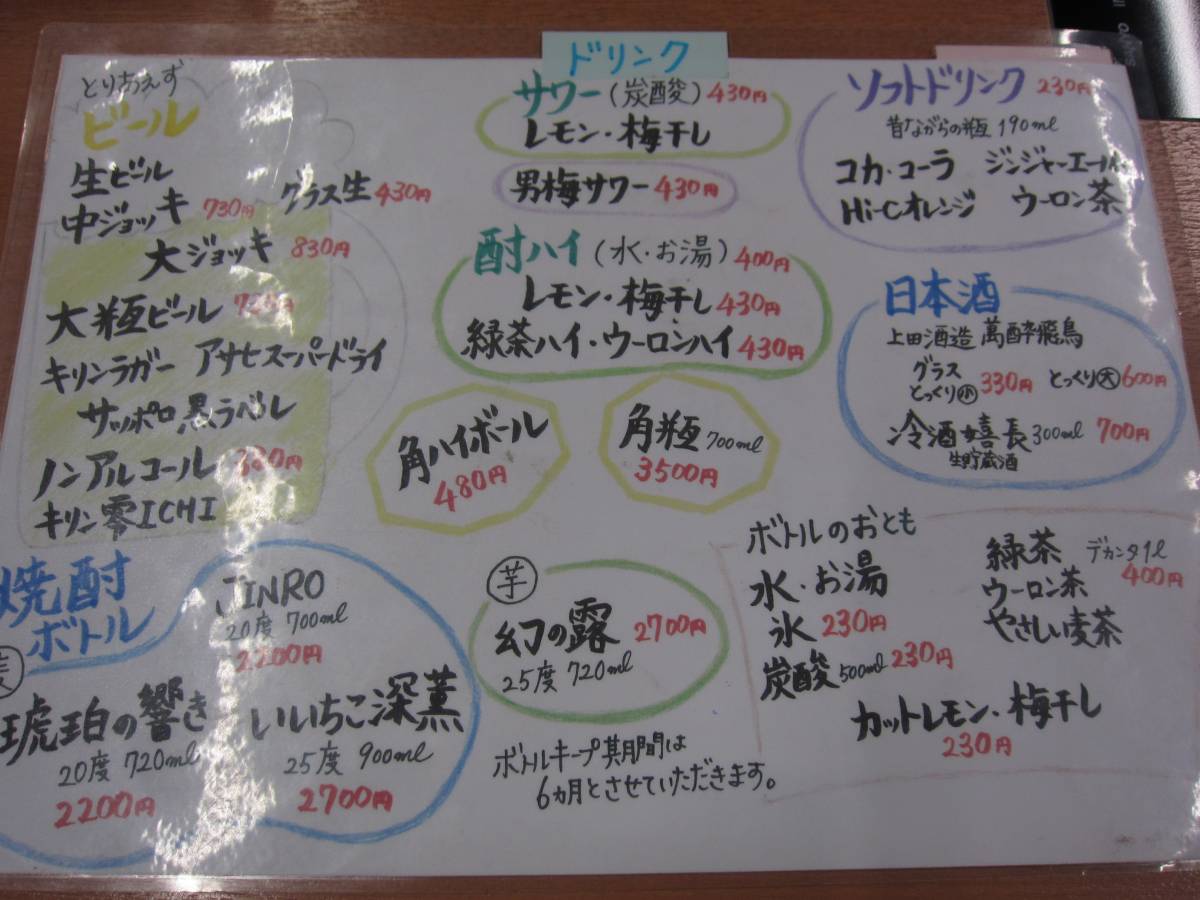 ドリンク
とりあえず
ビール
生ビール
中ジョッキ 730円 グラス生 430円
大ジョッキ 830円
大瓶ビール
キリンラガー アサヒスーパードライ
サッポロ黒ラベル
ノンアルコール
キリン零ICHI
サワー(炭酸)430円
レモン・梅干し
男梅サワー 430円
酎ハイ(水・お湯)400円
レモン・梅干し 430円
緑茶ハイ・ウーロンハイ 430円
角ハイボール
480円
角瓶 700ml
3500円
ソフトドリンク 230円
昔ながらの瓶 190ml
コカ・コーラ ジンジャーエール
Hi-Cオレンジ ウーロン茶
日本酒
上田酒造 萬酔飛鳥
グラス
とっくり小 330円 とっくり大 600円
冷酒 嬉長 300ml 700円
生貯蔵酒
焼酎
ボトル
JINRO
20度 700ml
2200円
麦
琥珀の響き
20度 720ml
2200円
いいちこ深薫
25度 900ml
2700円
芋
幻の露 2700円
25度 720ml
ボトルキープ期間は
6ヵ月とさせていただきます。
ボトルのおとも
水・お湯
氷 230円
炭酸 500ml 230円
緑茶 デカンタ1l
ウーロン茶 400円
やさしい麦茶
カットレモン・梅干し
230円